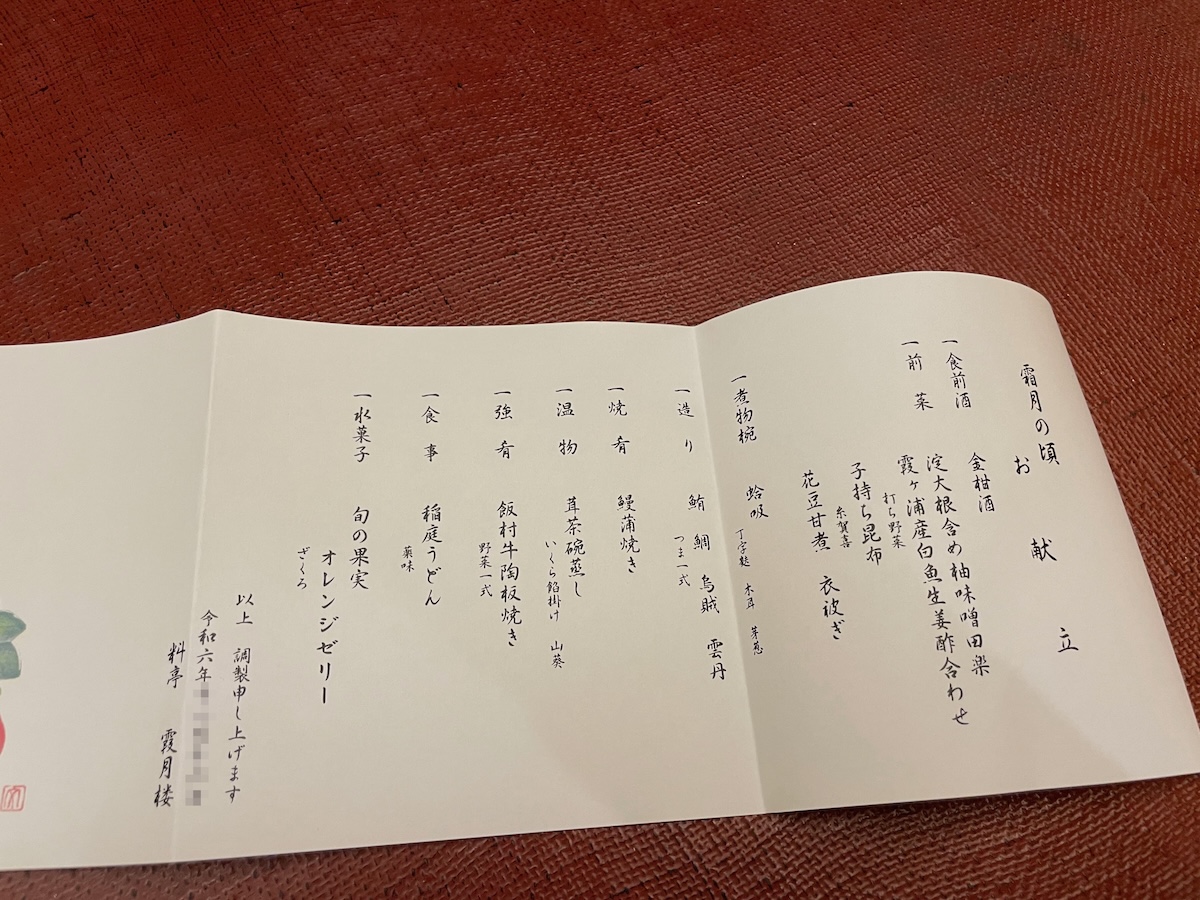 霜月の頃
お献立
一食前酒 金柑酒
一前菜 淀大根含め柚味噌田楽
霞ヶ浦産白魚生姜酢合わせ
打ち野菜
子持ち昆布
糸賀喜
花豆甘煮 衣被ぎ
一煮物椀 蛤吸
丁字麩 木耳 芽葱
一造り 鮪 鯛 烏賊 雲丹
つま一式
一焼肴 鰻蒲焼き
一温物 茸茶碗蒸し
いくら餡掛け 山葵
一強肴 飯村牛陶板焼き
野菜一式
一食事 稲庭うどん
薬味
一水菓子 旬の果実
オレンジゼリー
ざくろ
以上 調製申し上げます
令和六年
料亭 霞月楼